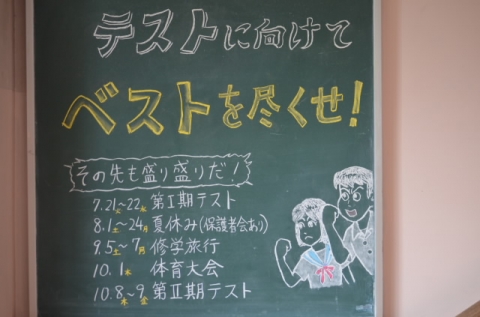 テストに向けて
ベストを尽くせ!
その先も盛り盛りだ!
7.21火~22水 第Ⅰ期テスト
8.1土~24月 夏休み(保護者会あり)
9.5土~7月 修学旅行
10.1木 体育大会
10.8木~9金 第Ⅱ期テスト